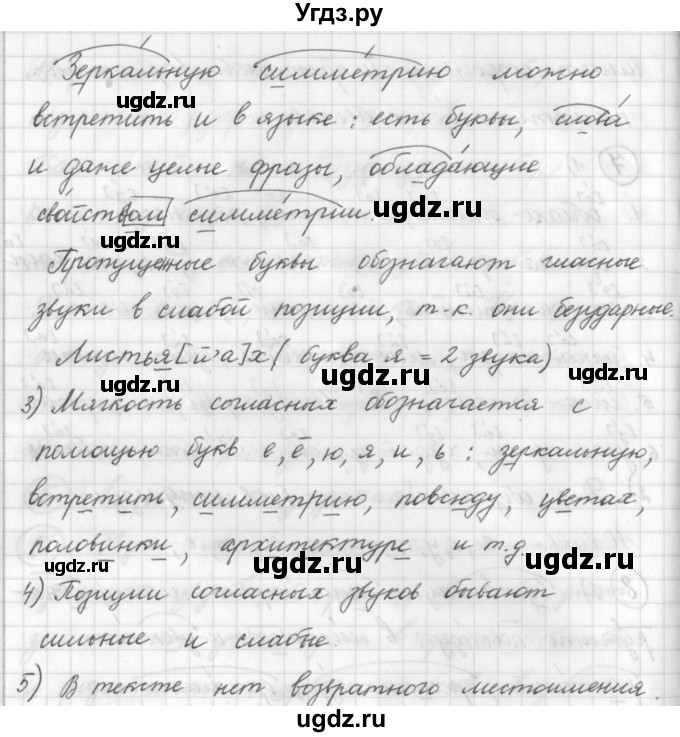 Угдз.ру
Зеркальную симметрию можно
встретить и в языке: есть буквы, слова
и даже целые фразы, обладающие
свойством симметрии.
Пропущенные буквы обозначают гласные
звуки в слабой позиции, т.к. они безударные.
Листья [й'а]х (буква я = 2 звука)
3) Мягкость согласных обозначается с
помощью букв е, ё, ю, я, и, ь: зеркальную,
встретить, симметрию, повсюду, цветах,
половинки, архитектуре и т.д.
4) Позиции согласных звуков бывают
сильные и слабые.
5) В тексте нет возвратного местоимения.
ugdz.ru
ugdz.ru
ugdz.ru
ugdz.ru
ugdz.ru
ugdz.ru
ugdz.ru
ugdz.ru
ugdz.ru
ugdz.ru
ugdz.ru
ugdz.ru
ugdz.ru
ugdz.ru